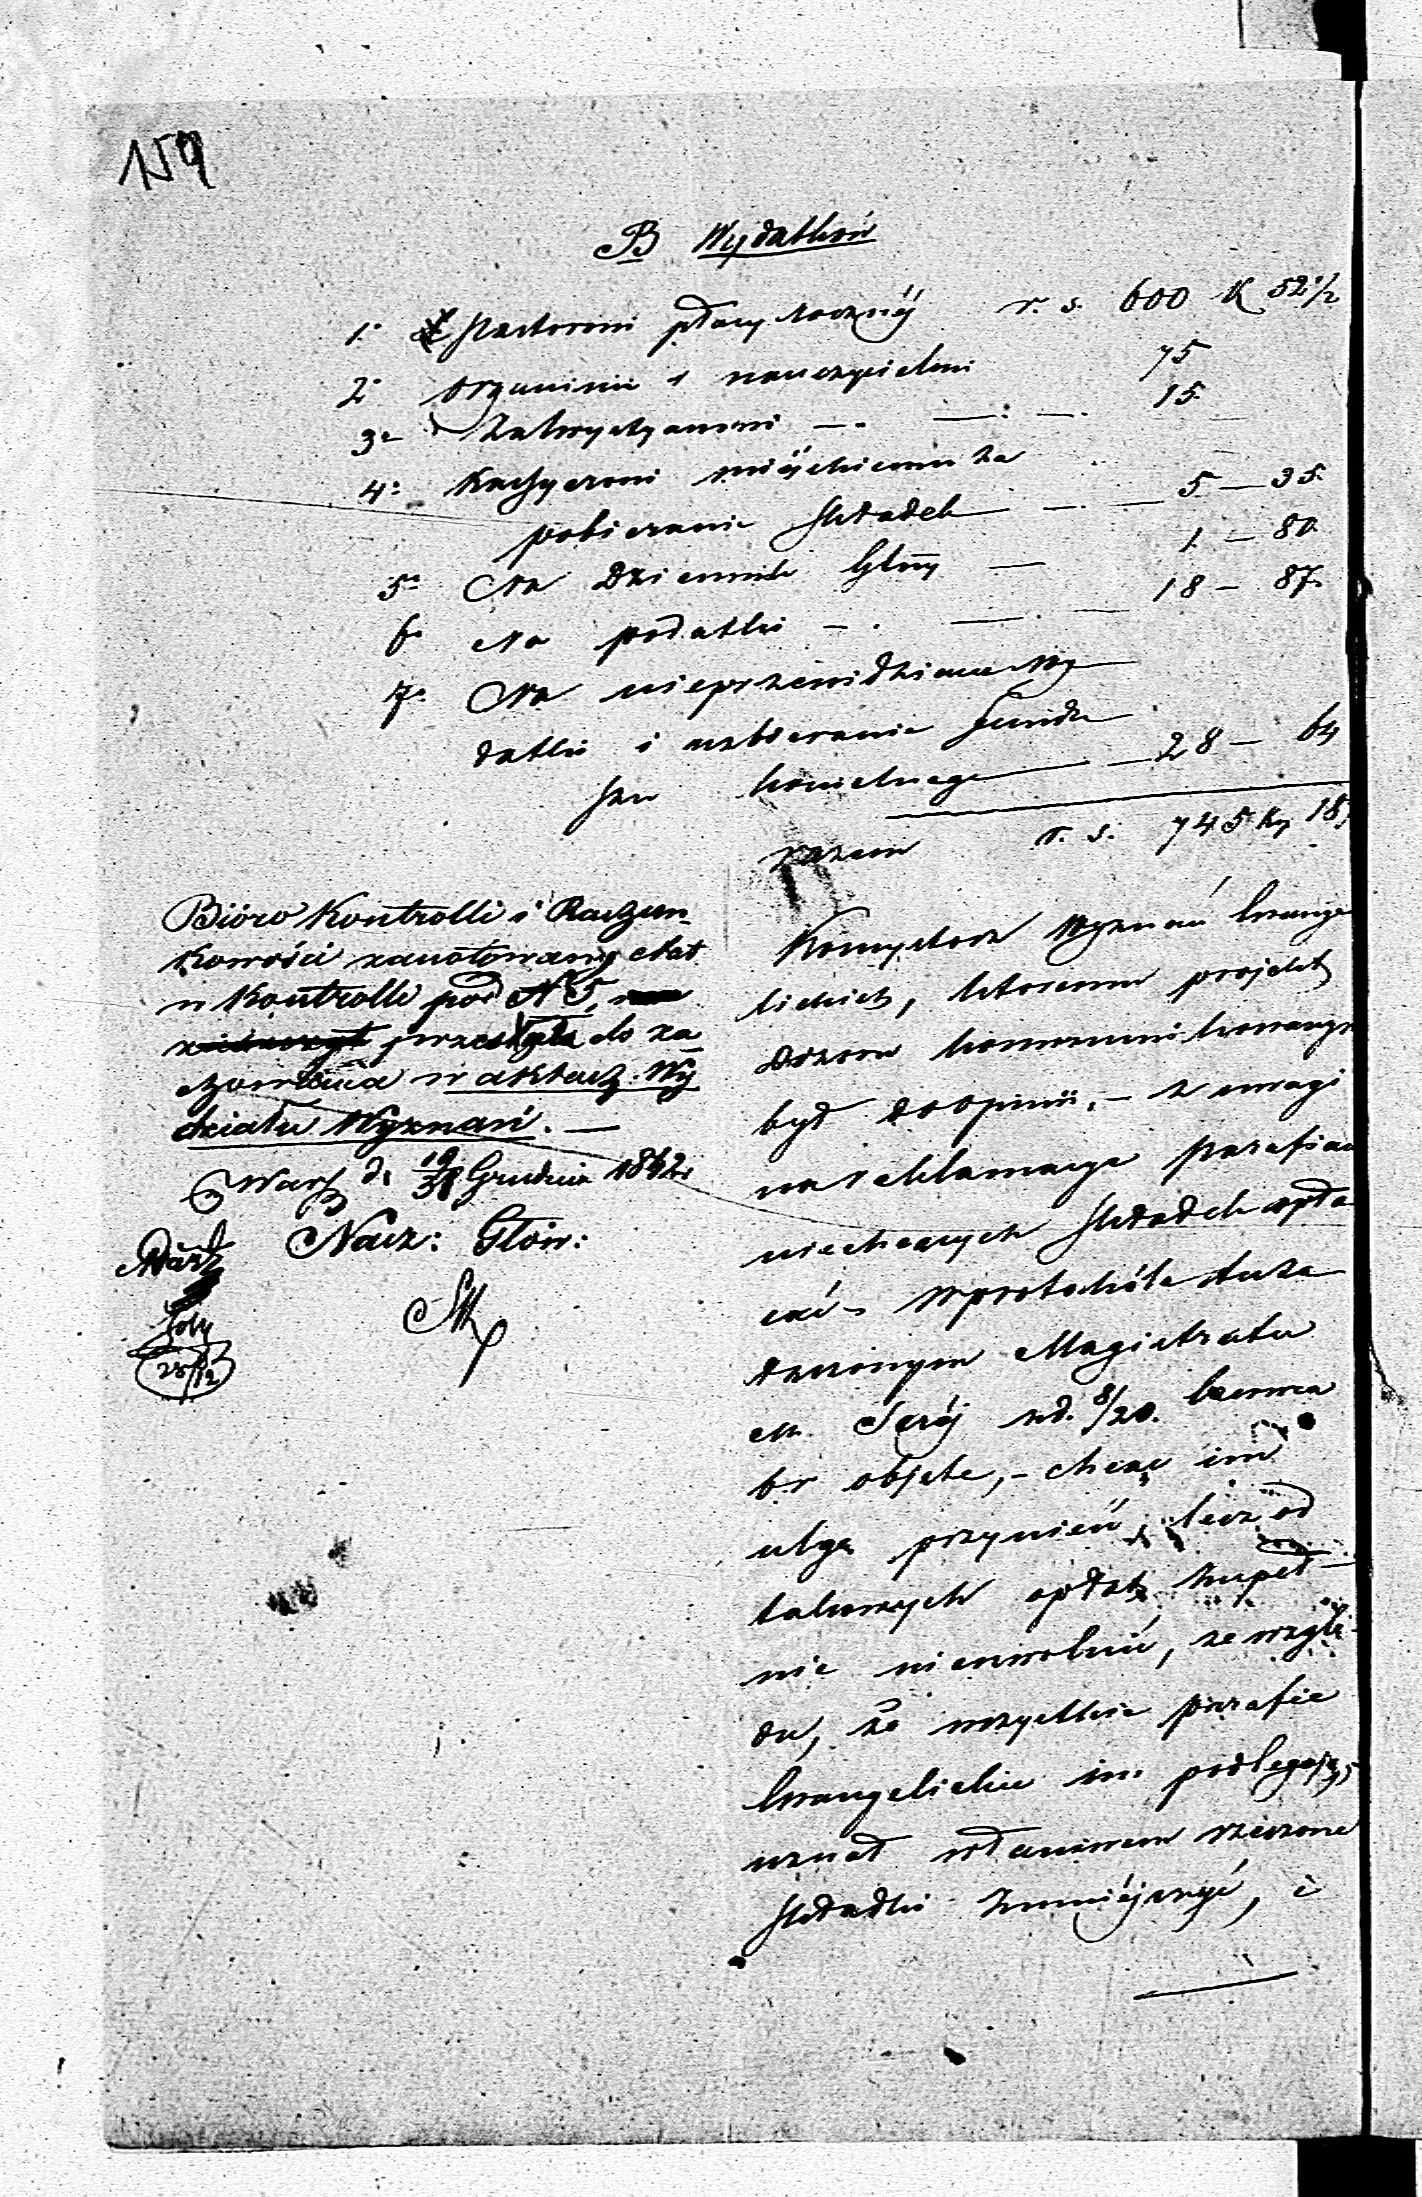 159
B Wydatków
1. Pastorowi płacy rocznéj r. s. 600 K 52 1/2
2. Organiście i nauczycielowi 75
3. Zakrystyanowi — . — : — . 15.
4. Kassyerowi miéyskiemu za
pobieranie składek — . — 5 — 35.
5. Na Dziennik Głny — 1. — 80.
6. Na podatki — . — . — 18 — 87.
7. Na nieprzewidziane Wy
datki i uzbieranie fundu
szu kościelnego — 28 — 64
razem r. s. 745 Kp 18
Bióro Kontrolli i Rachun
kowości zanotowany etat
w Kontrolli pod N 5,
przesyła do za
chowania w aktach Wy
działu Wyznań. —
Warsz d. 19/31 Grudnia 1842.
Nacz: Głów:
28/12
Konsystorz Wyznań Ewange
lickich, któremu projekt
Dozoru kommunikowanym
był do opinii, — z uwagi
na reklamacye parafian
niechcących składek opła
cać — w protokóle Urzę
dzonym Magistratu
M. Seréj z d. 8/20. Czerwca
br objęte, — chcąc im
ulgę przynieść, lecz od
takowych opłat zupeł
nie nieuwolnić, ze wzglę
du, że wszystkie parafie
Ewangelickie im podlegają,
uznał w danym rzeczone
składki zmniéjszyć, i